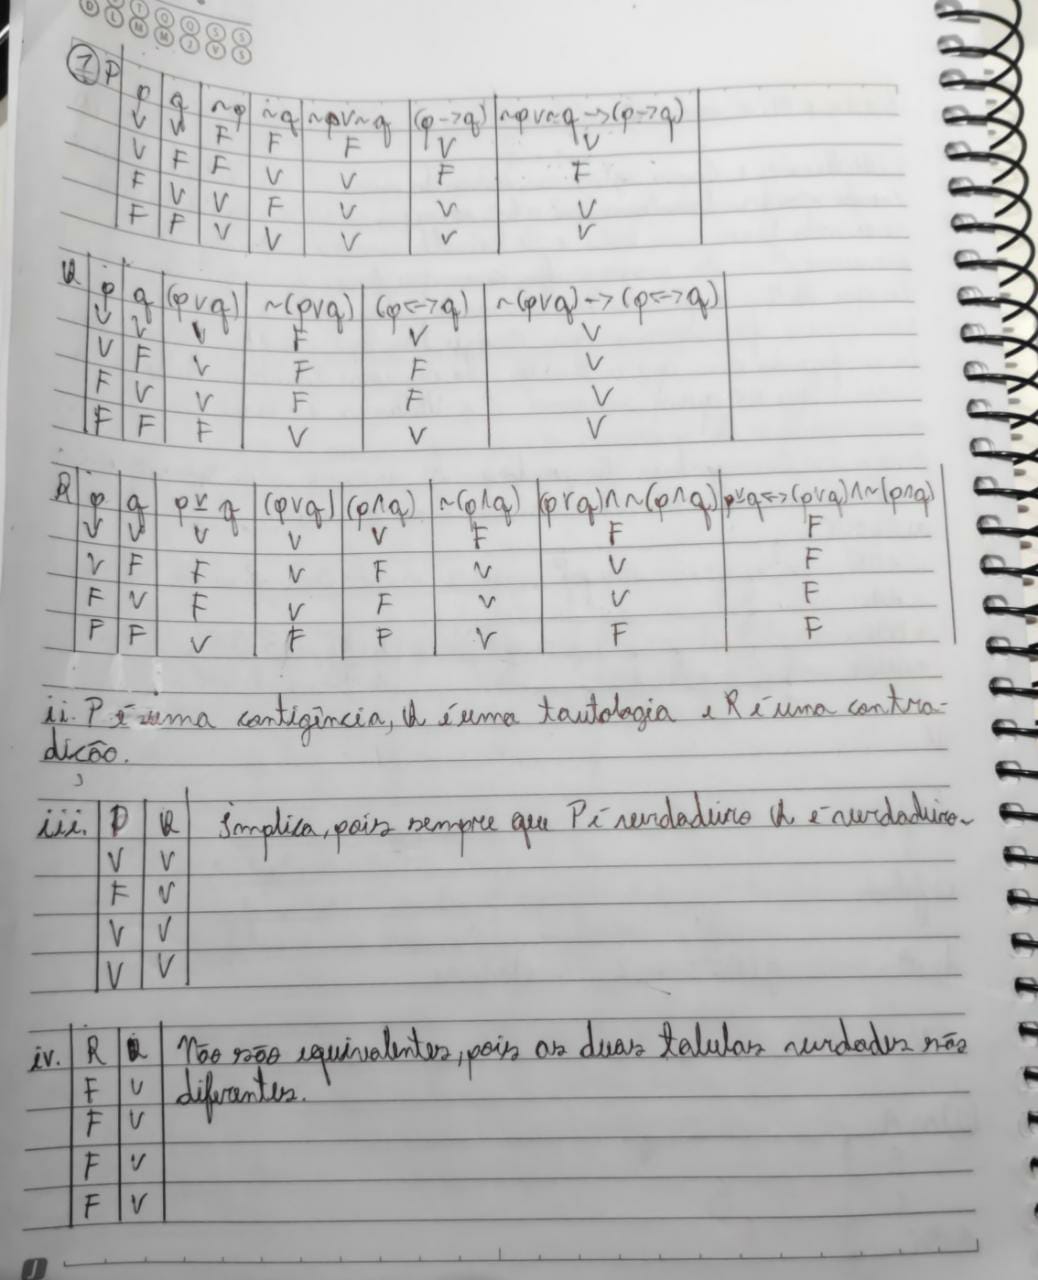 D L T M Q M Q J S V S S
1 P p q ~p ~q ~p∨~q (p->q) ~p∨~q->(p->q)
V V F F F V V
V F F V V F F
F V V F V V V
F F V V V V V
Q p q (p∨q) ~(p∨q) (p<->q) ~(p∨q)->(p<->q)
V V V F V V
V F V F F V
F V V F F V
F F F V V V
R p q p⊻q (p∨q) (p∧q) ~(p∧q) (p∨q)∧~(p∧q) p⊻q<->(p∨q)∧~(p∧q)
V V V V V F F F
V F F V F V V F
F V F V F V V F
F F V F F V F F
ii. P é uma contigência, Q é uma tautologia e R é uma contra-
dicão.
iii. P Q Implica, pois sempre que P é verdadeiro Q é verdadeiro.
V V
F V
V V
V V
iv. R Q Não são equivalentes, pois as duas tabulas verdades são
F V diferentes.
F V
F V
F V